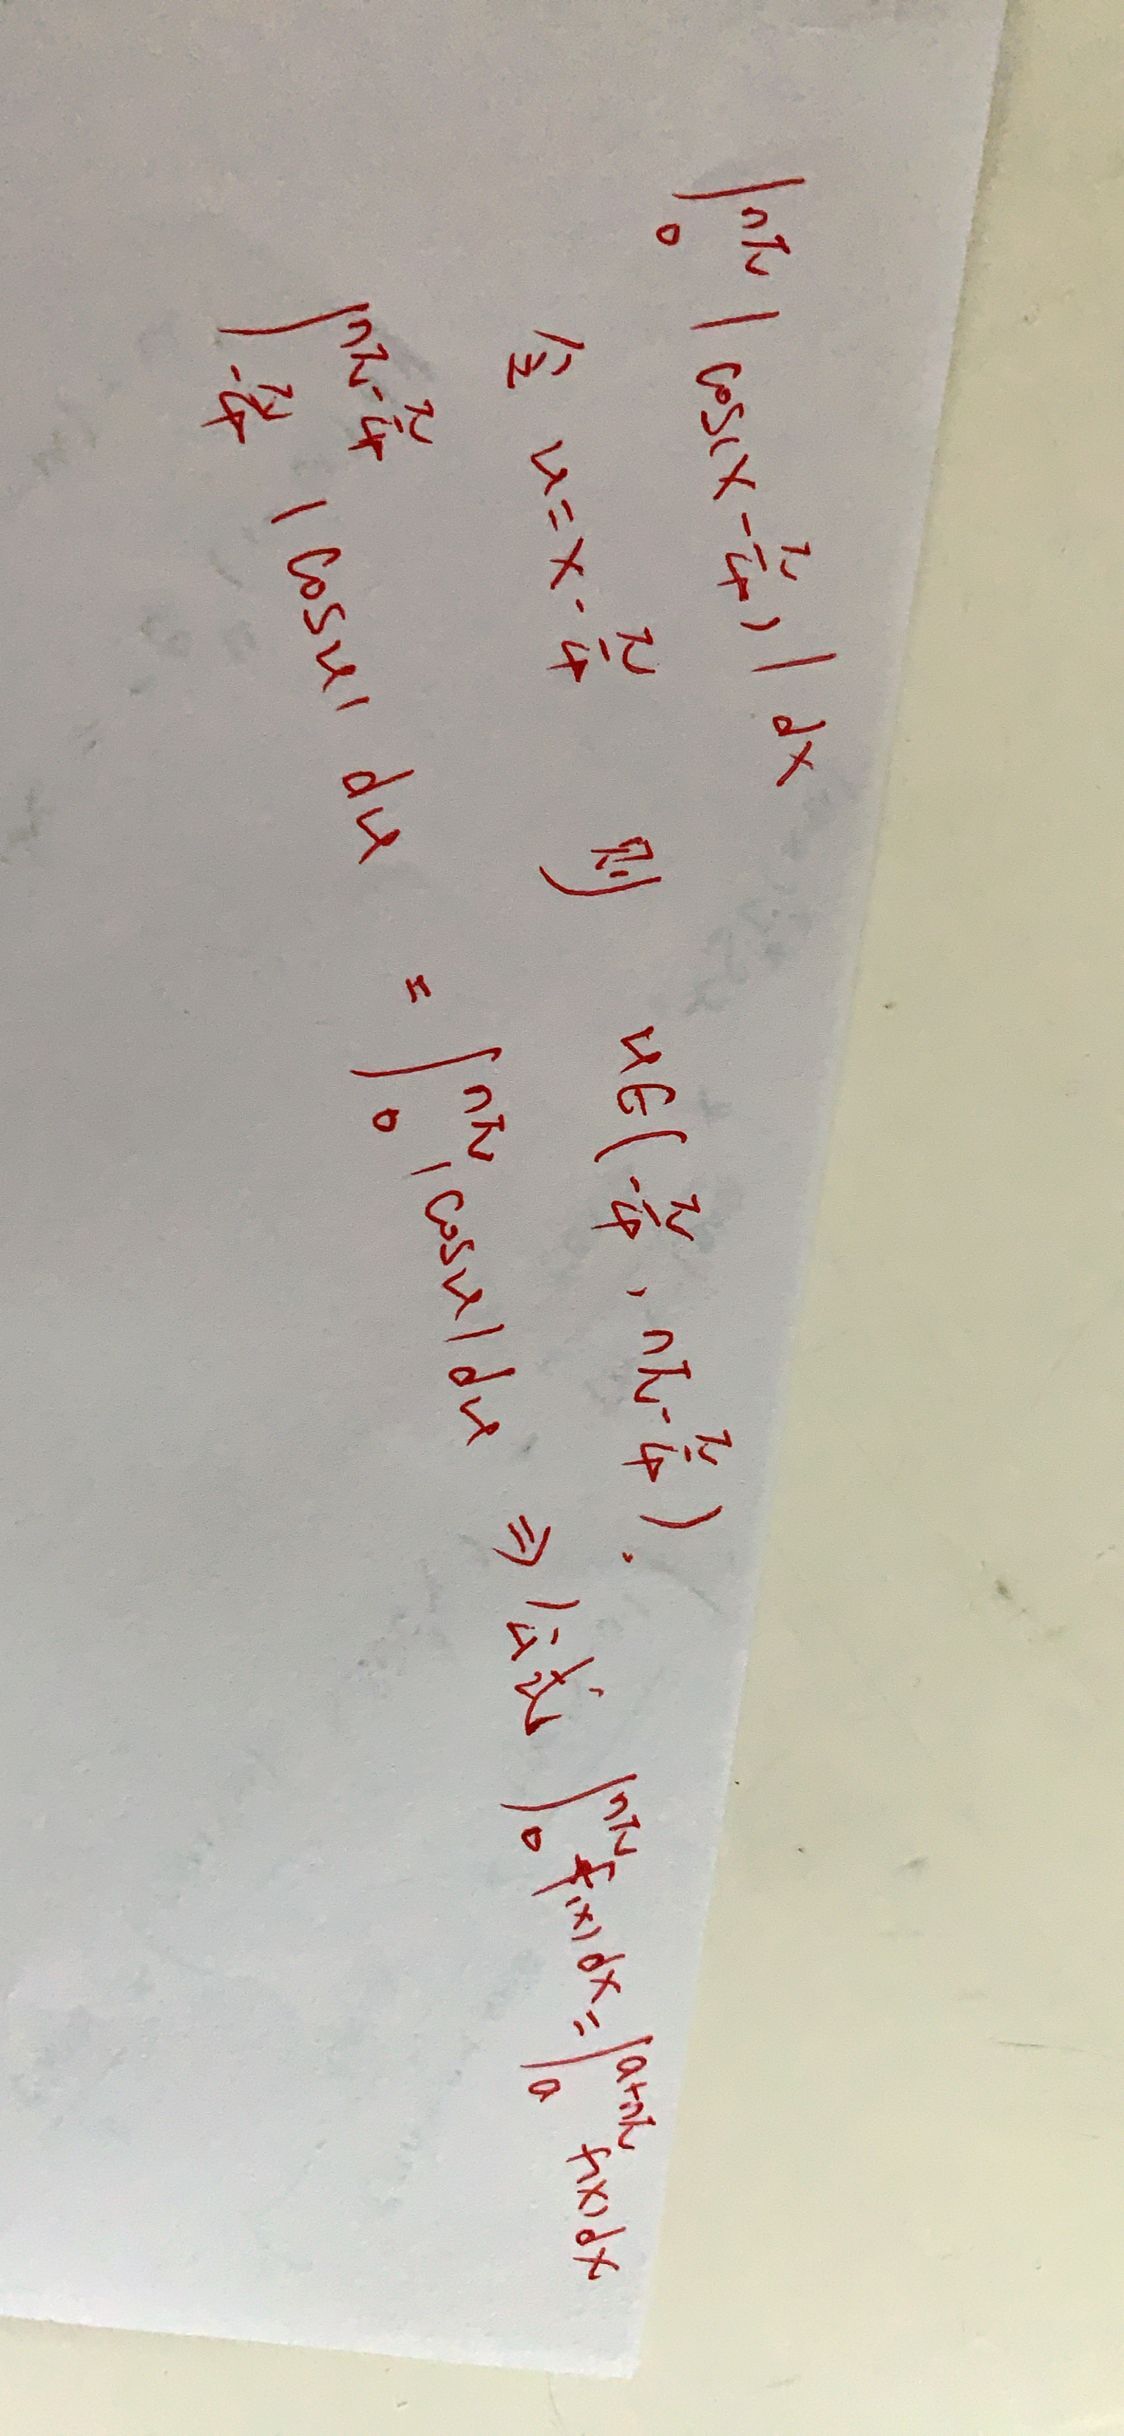 ∫₀^{nπ} |cos(x-π/4)| dx
令 u=x-π/4 则 u∈(-π/4, nπ-π/4).
∫_{-π/4}^{nπ-π/4} |cosu| du = ∫₀^{nπ} |cosu| du ⇒ ∫₀^{nπ} f(x)dx=∫ₐ^{a+nπ} f(x)dx